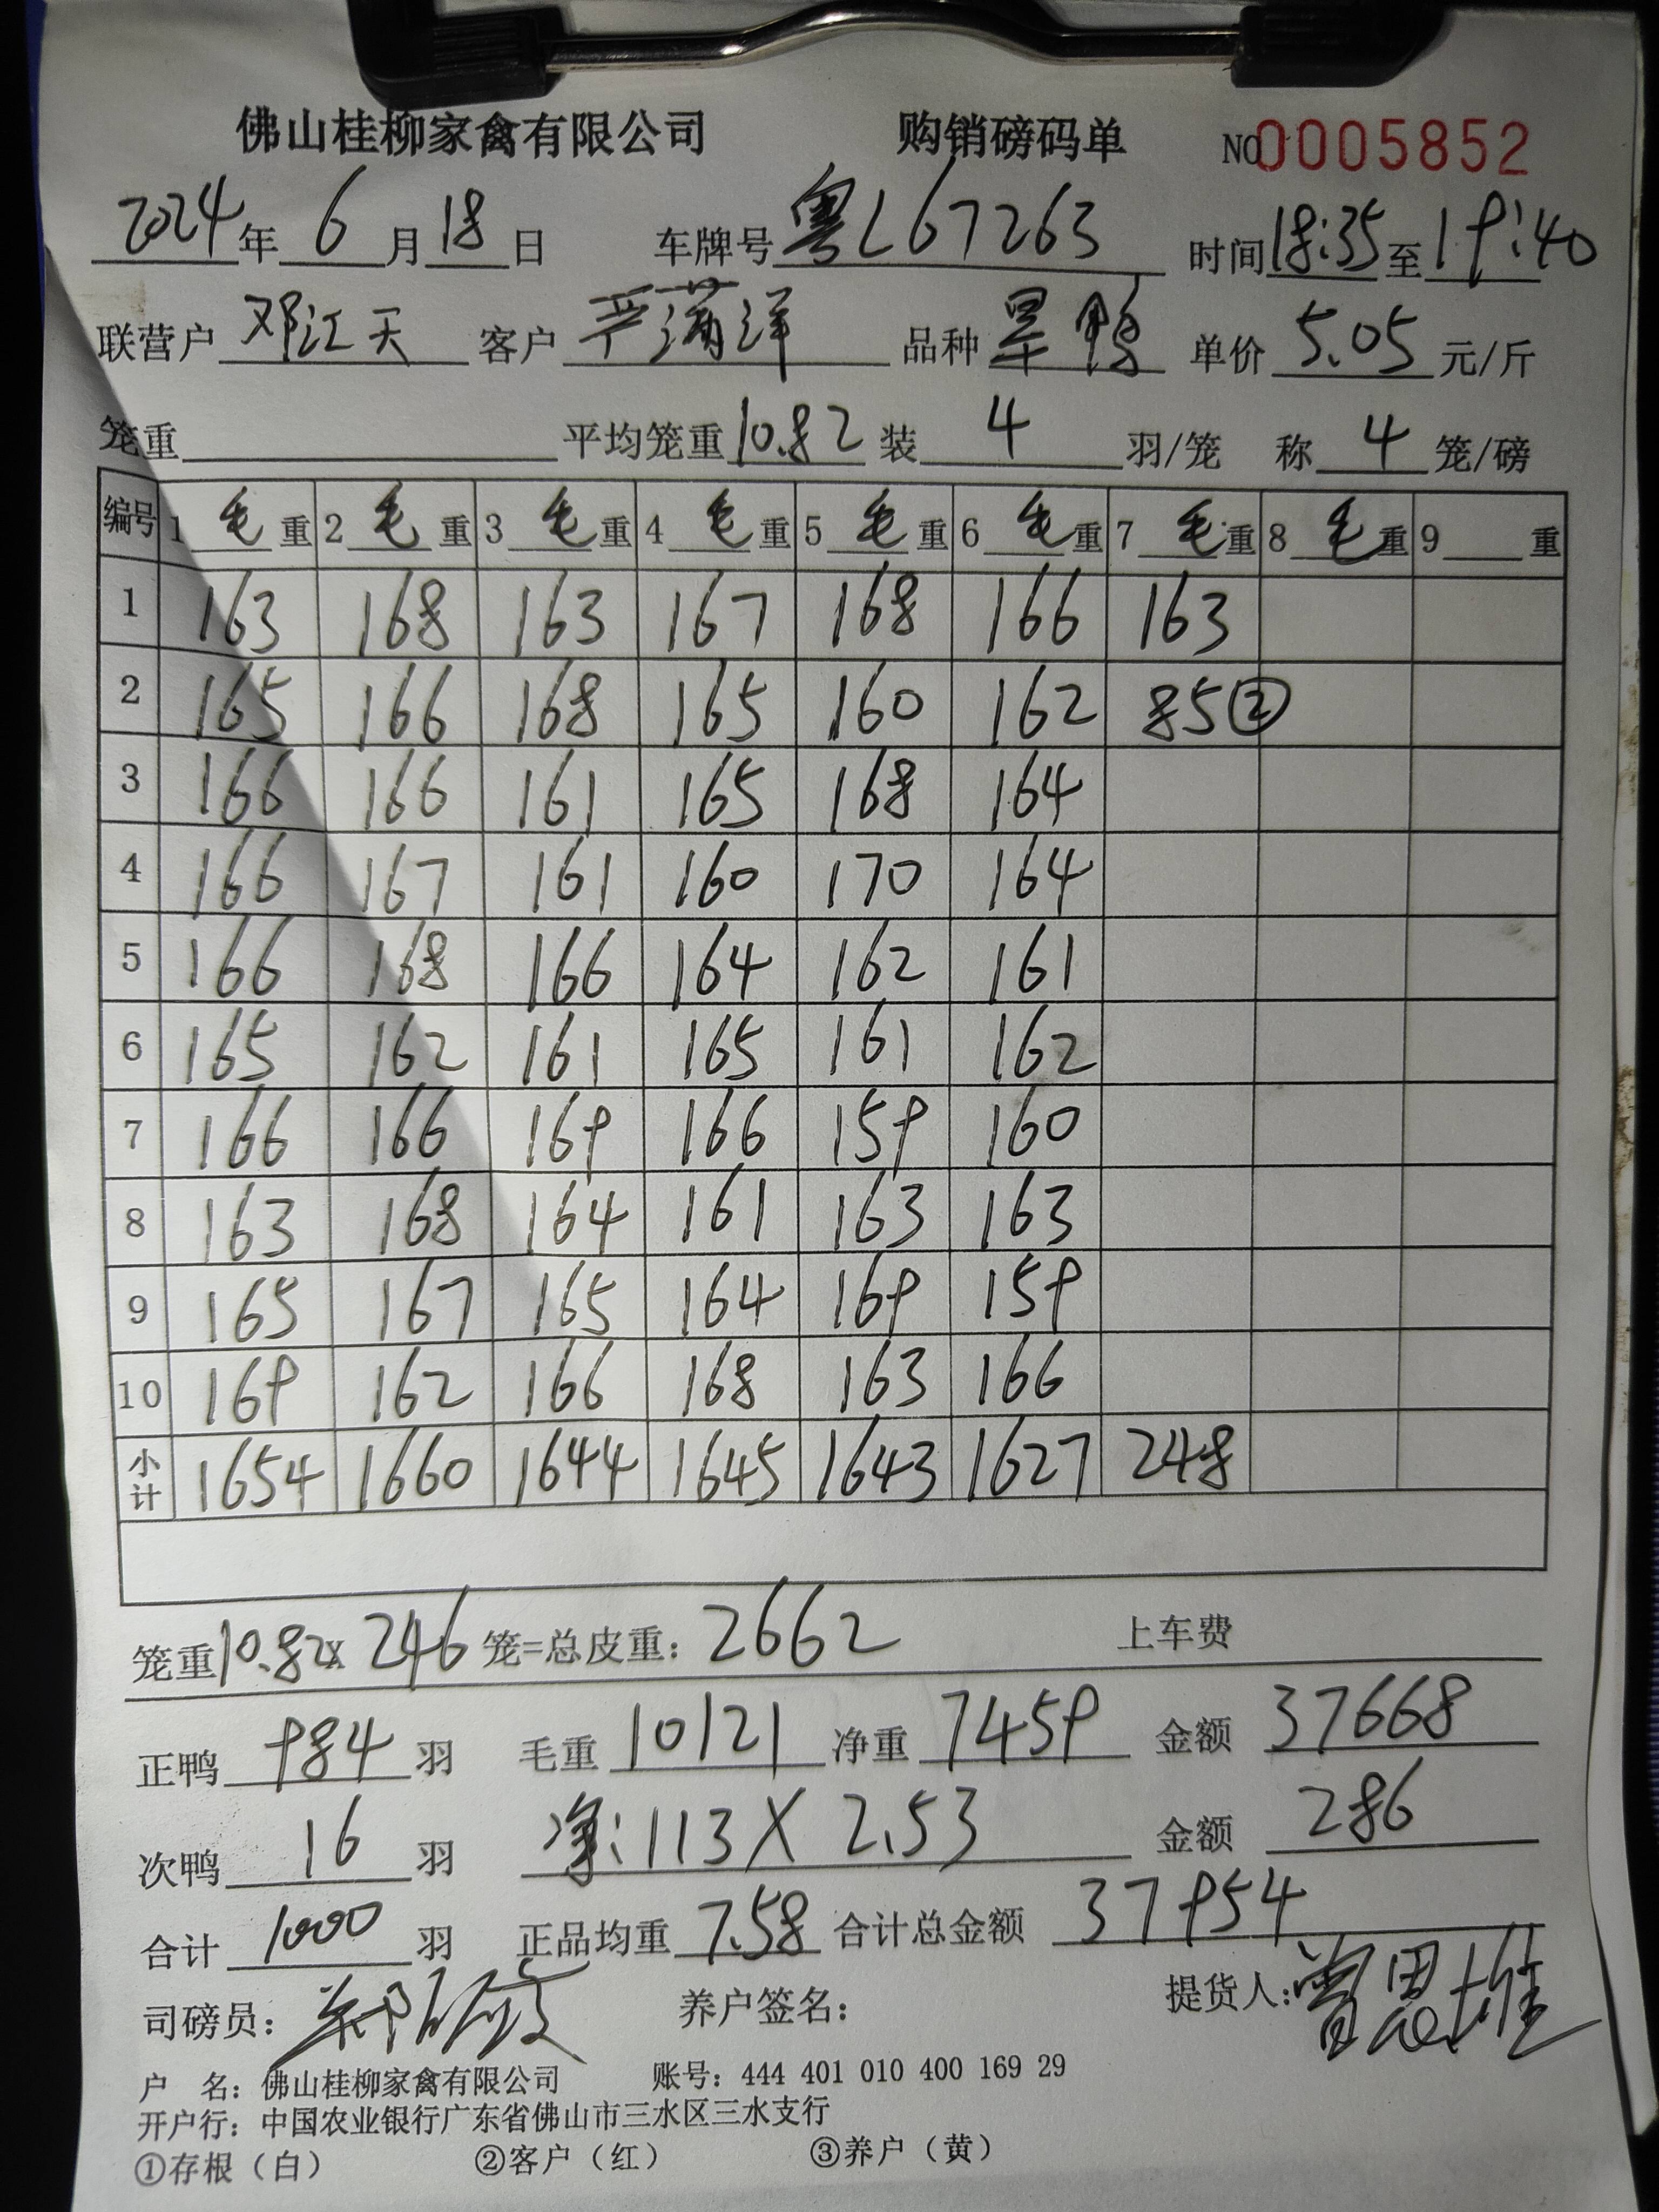 佛山桂柳家禽有限公司 购销磅码单 NO0005852
2024年6月18日 车牌号粤L67263 时间18:35至19:40
联营户邓江天 客户严满洋 品种旱鸭 单价5.05元/斤
笼重 平均笼重10.82装4羽/笼 称4笼/磅
编号 1毛重 2毛重 3毛重 4毛重 5毛重 6毛重 7毛重 8毛重 9重
1 163 168 163 167 168 166 163
2 165 166 168 165 160 162 85②
3 166 166 161 165 168 164
4 166 167 161 160 170 164
5 166 168 166 164 162 161
6 165 162 161 165 161 162
7 166 166 169 166 159 160
8 163 168 164 161 163 163
9 165 167 165 164 169 159
10 169 162 166 168 163 166
小计 1654 1660 1644 1645 1643 1627 248
笼重10.82x246笼=总皮重：2662 上车费
正鸭984羽 毛重10121净重7459 金额37668
次鸭16羽 净:113X2.53 金额286
合计1000羽 正品均重7.58合计总金额37954
司磅员： 养户签名： 提货人：曾思雄
户 名：佛山桂柳家禽有限公司 账号：444 401 010 400 169 29
开户行：中国农业银行广东省佛山市三水区三水支行
①存根（白） ②客户（红） ③养户（黄）